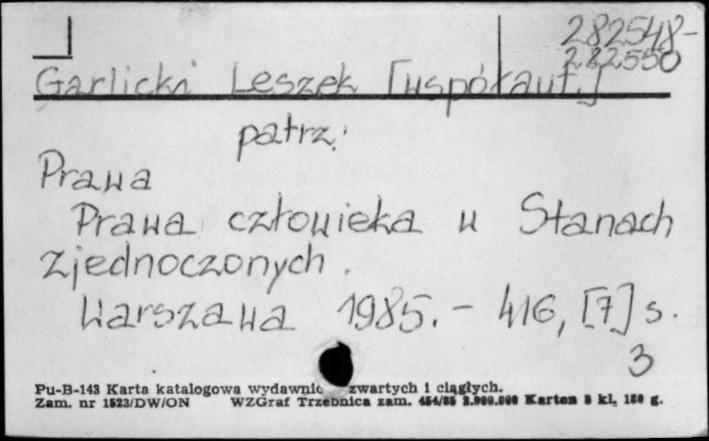 282548-
282550
Garlicki Leszek [współaut.]
patrz:
Prawa
Prawa człowieka w Stanach
Zjednoczonych.
Warszawa 1985. - 416, [7] s.
3
Pu-B-143 Karta katalogowa wydawnic zwartych i ciągłych.
Zam. nr 1523/DW/ON WZGraf Trzebnica zam. 454/85 2.000.000 Karton 8 kl. 180 g.